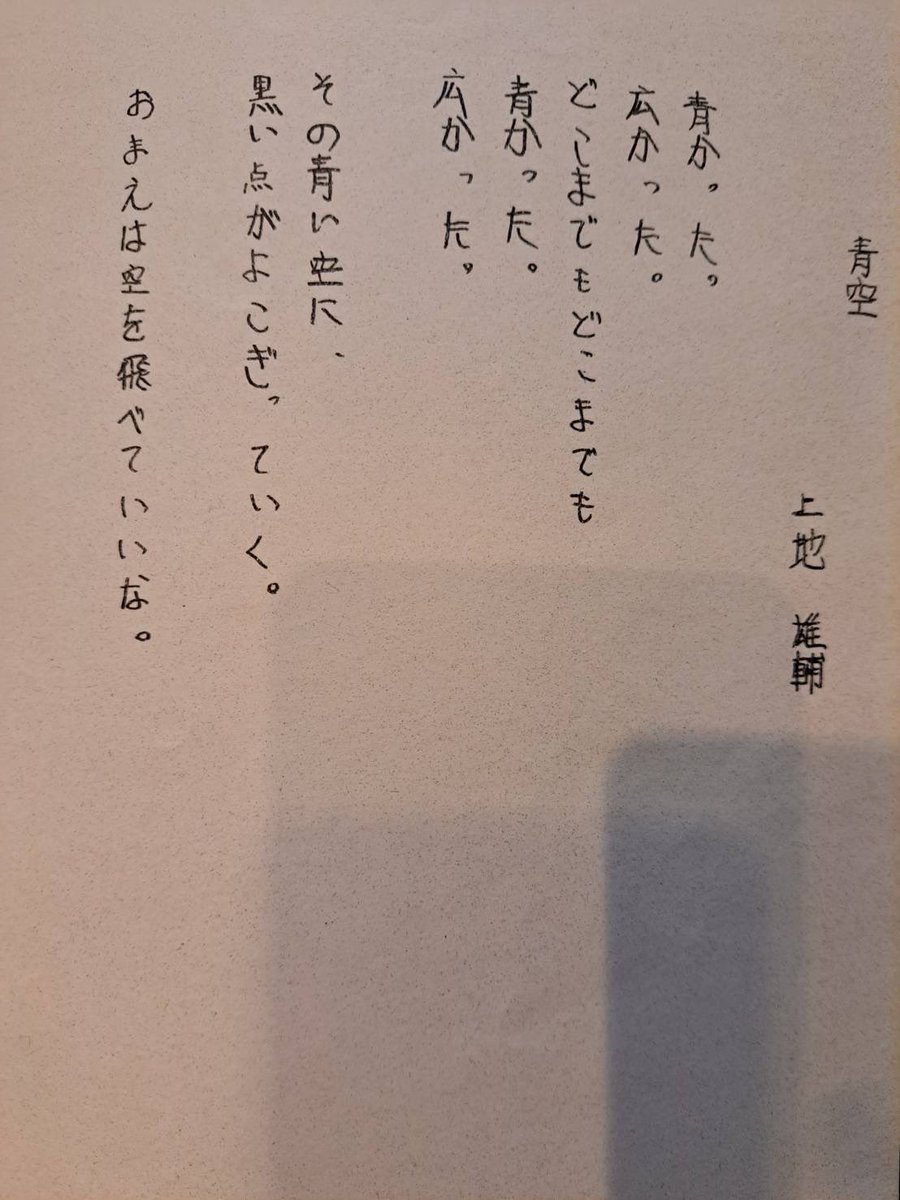 青空
上地 雄輔
青かった。
広かった。
どこまでもどこまでも
青かった。
広かった。
その青い空に、
黒い点がよこぎっていく。
おまえは空を飛べていいな。